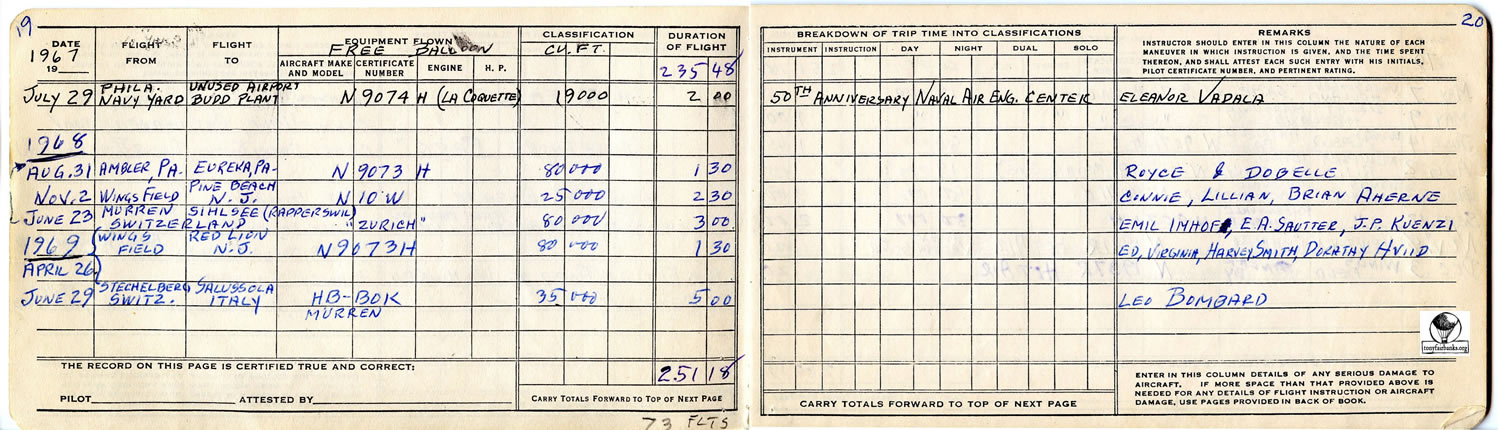 19
DATE
1967
19
FLIGHT FROM
FLIGHT TO
EQUIPMENT FLOWN
FREE BALLOON
AIRCRAFT MAKE AND MODEL
CERTIFICATE NUMBER
ENGINE
H. P.
CLASSIFICATION
CU. FT.
DURATION OF FLIGHT
235 48
JULY 29 PHILA. NAVY YARD UNUSED AIRPORT BUDD PLANT N 9074 H (LA COQUETTE) 19000 2 00
1968
AUG. 31 AMBLER, PA. EUREKA, PA- N 9073 H 80000 1 30
NOV. 2 WINGS FIELD PINE BEACH N.J. N 10 W 25000 2 30
JUNE 23 MURREN SWITZERLAND SIHLSEE (RAPPERSWIL) "ZURICH" 80000 3 00
1969 WINGS FIELD RED LION N.J. N9073H 80000 1 30
APRIL 26
JUNE 29 STECHELBERG SWITZ. SALUSSOLA ITALY HB-BOK MURREN 35000 5 00
THE RECORD ON THIS PAGE IS CERTIFIED TRUE AND CORRECT:
251 18
PILOT ATTESTED BY
CARRY TOTALS FORWARD TO TOP OF NEXT PAGE
73 FLTS
20
BREAKDOWN OF TRIP TIME INTO CLASSIFICATIONS
INSTRUMENT INSTRUCTION DAY NIGHT DUAL SOLO
REMARKS
INSTRUCTOR SHOULD ENTER IN THIS COLUMN THE NATURE OF EACH
MANEUVER IN WHICH INSTRUCTION IS GIVEN, AND THE TIME SPENT
THEREON, AND SHALL ATTEST EACH SUCH ENTRY WITH HIS INITIALS,
PILOT CERTIFICATE NUMBER, AND PERTINENT RATING.
50TH ANNIVERSARY NAVAL AIR ENG. CENTER ELEANOR VADALA
ROYCE & DOBELLE
CONNIE, LILLIAN, BRIAN AHERNE
EMIL IMHOF, E.A. SAUTTER, J.P. KUENZI
ED, VIRGINIA, HARVEY SMITH, DORATHY HVIID
LEO BOMBARD
tonyfairbanks.org
CARRY TOTALS FORWARD TO TOP OF NEXT PAGE
ENTER IN THIS COLUMN DETAILS OF ANY SERIOUS DAMAGE TO
AIRCRAFT. IF MORE SPACE THAN THAT PROVIDED ABOVE IS
NEEDED FOR ANY DETAILS OF FLIGHT INSTRUCTION OR AIRCRAFT
DAMAGE, USE PAGES PROVIDED IN BACK OF BOOK.